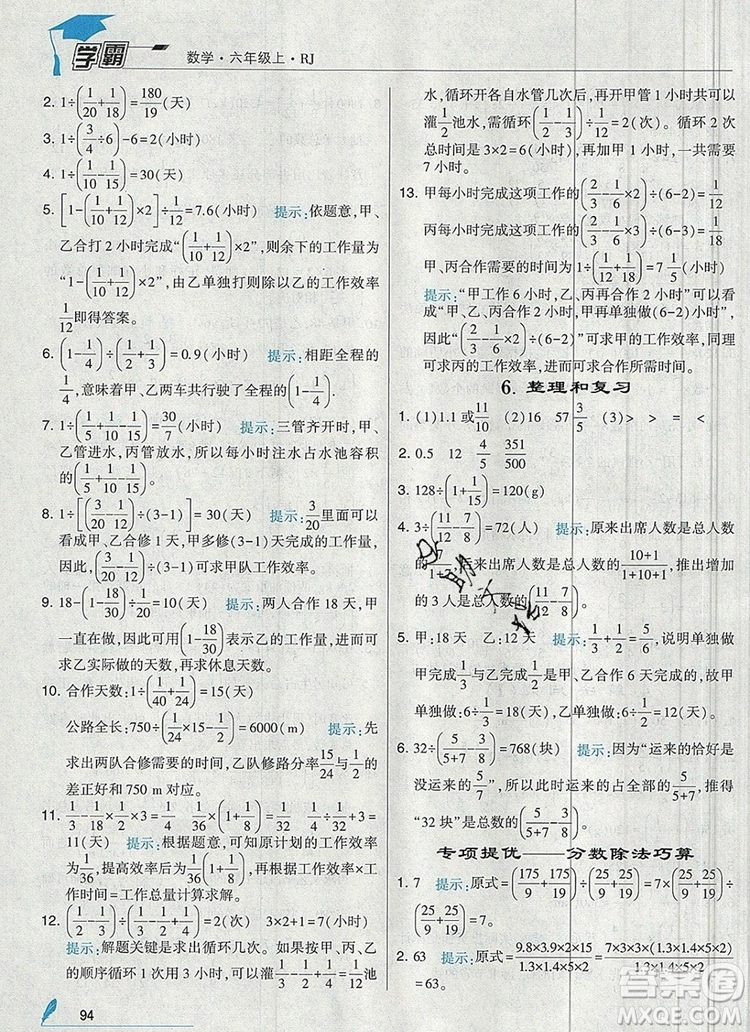 学霸 数学·六年级上·RJ
2. 1÷(1/20+1/18)=180/19(天)
3. 1÷(3/4÷6)-6=2(小时)
4. 1÷(1/10-1/15)=30(天)
5. [1-(1/10+1/12)×2]÷1/12=7.6(小时) 提示:依题意,甲、
乙合打 2 小时完成“(1/10+1/12)×2”,则余下的工作量为
“1-(1/10+1/12)×2”,由乙单独打则除以乙的工作效率
1/12即得答案。
6. (1-1/4)÷(1/2+1/3)=0.9(小时) 提示:相距全程的
1/4,意味着甲、乙两车共行驶了全程的(1-1/4).
7. 1÷(1/5+1/4-1/10)=30/7(小时) 提示:三管齐开时,甲、
乙管注水,丙管放水,所以每小时注水占水池容积
的(1/5+1/4-1/10).
8. 1÷[(3/20-1/12)÷(3-1)]=30(天) 提示:3/20里面可以
看成甲、乙合修 1 天,甲多修(3-1)天完成的工作量,
因此(3/20-1/12)÷(3-1)可求得甲队工作效率。
9. 18-(1-18/30)÷1/20=10(天) 提示:两人合作 18 天,甲
一直在做,因此可用(1-18/30)表示乙的工作量,用它可
求乙实际做的天数,再求休息天数。
10. 合作天数:1÷(1/40+1/24)=15(天)
公路全长:750÷(1/24×15-1/2)=6000(m) 提示:先
求出两队合修需要的时间,乙队修路总长15/24与1/2的
差正好和 750 m 对应。
11. 1/3-1/18×1/2=11/36 11/36÷[1/36×(1+1/8)]=
11(天) 提示:根据题意,可知原计划的工作效率
为1/36,提高效率后为1/36×(1+1/8),再根据工作效率×
工作时间=工作总量计算求解。
12. (1/2-1/3)÷(1/3-1/4)=2(次) 3×2+1=7(小时)
提示:解题关键是求出循环几次。如果按甲、丙、乙
的顺序循环 1 次用 3 小时,可灌(1/3-1/4)=1/12池
水,循环开各自水管几次后,再开甲管 1 小时共可以
灌1/2池水,需循环(1/2-1/3)÷1/12=2(次)。循环 2 次
总时间是 3×2=6(小时),再加甲 1 小时,一共需要
7 小时。
13. 甲每小时完成这项工作的(2/3-1/6×2)÷(6-2)=1/12
丙每小时完成这项工作的(2/3-1/6×3)÷(6-3)=1/18
甲、丙合作需要的时间为 1÷(1/12+1/18)=7 1/5(小时)
提示:“甲工作 6 小时,乙、丙再合作 2 小时”可以看
成“甲、乙、丙合作 2 小时,甲再单独做(6-2)小时”,
因此“(2/3-1/6×2)÷(6-2)”可求甲的工作效率。同理
可求丙的工作效率,然后可求合作所需时间。
6. 整理和复习
1. (1)1.1 或11/10 (2)16 57 3/5 (3)> > = <
2. 0.5 12 4/5 351/500
3. 128÷(1+1/15)=120(g)
4. 3÷(11/12-7/8)=72(人) 提示:原来出席人数是总人数
的7/1+7,后来出席人数是总人数的10+1/1+10+1,所以增加
的 3 人是总人数的(11/12-7/8).
5. 甲:18 天 乙:12 天 提示:1/3+1/2=5/6,说明单独做
甲完成1/3与乙完成1/2,是甲、乙合作 6 天完成的,故甲
单独做:6÷1/3=18(天),乙单独做:6÷1/2=12(天)。
6. 32÷(5/12-3/8)=768(块) 提示:因为“运来的恰好是
没运来的5/7”,所以此时运来的占全部的5/5+7,推得
“32 块”是总数的(5/5+7-3/8).
专项提优——分数除法巧算
1. 7 提示:原式=(175/9+175/19)÷(25/9+25/19)=7×
(25/9+25/19)÷(25/9+25/19)=7。
2. 63 提示:原式=9.8×3.9×2.8×15/1.3×1.4×5×2=7×3×3×(1.3×1.4×5×2)/1.3×1.4×5×2
=63。
94
答案圈
MXQE.COM